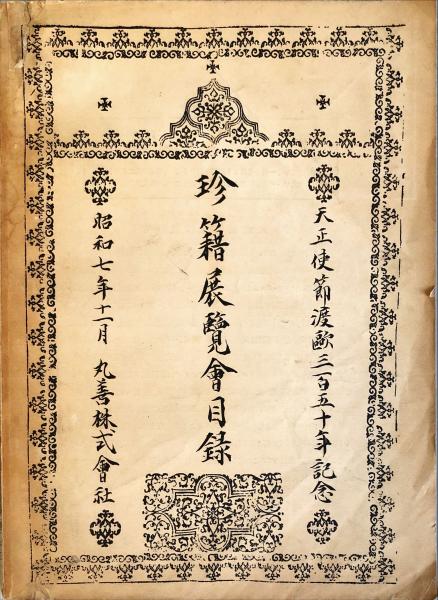 天正使節渡歐三百五十年記念
珍籍展覽會目録
昭和七年十一月 丸善株式會社